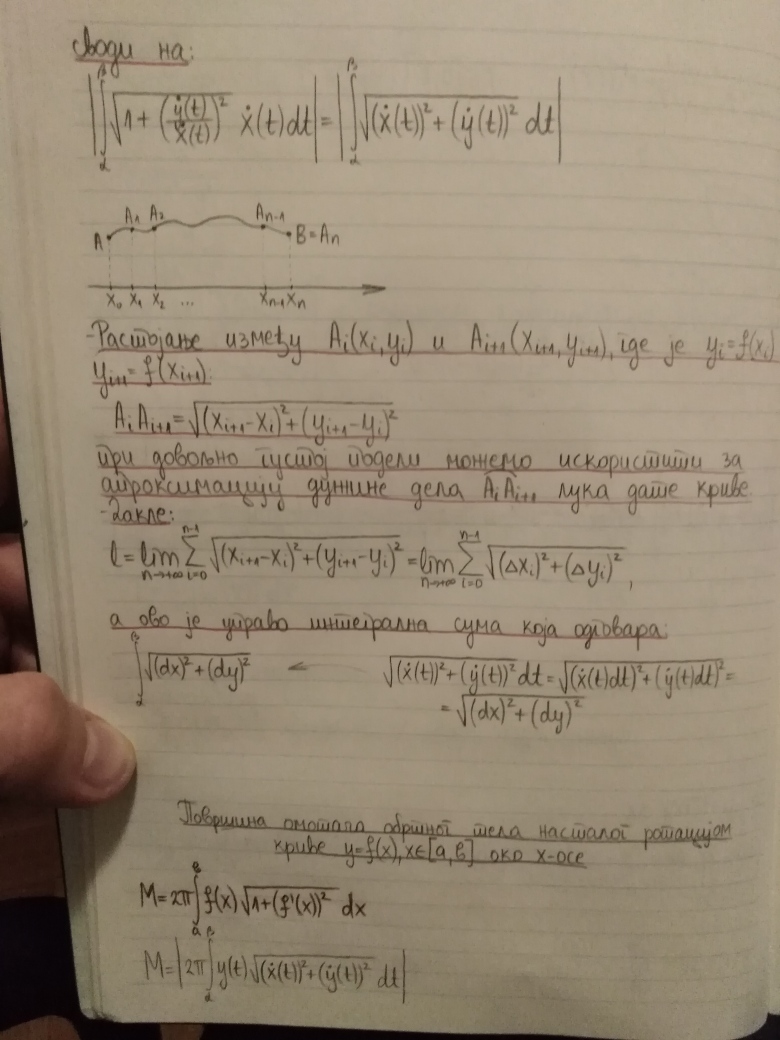 своди на:
|∫_α^β √(1+(ẏ(t)/ẋ(t))²) ẋ(t)dt| = |∫_α^β √((ẋ(t))²+(ẏ(t))²) dt|
A A₁ A₂ Aₙ₋₁ B=Aₙ
x₀ x₁ x₂ ... xₙ₋₁ xₙ
-Растојање између Aᵢ(xᵢ,yᵢ) и Aᵢ₊₁(xᵢ₊₁,yᵢ₊₁), где је yᵢ=f(xᵢ)
yᵢ₊₁=f(xᵢ₊₁):
AᵢAᵢ₊₁=√((xᵢ₊₁-xᵢ)²+(yᵢ₊₁-yᵢ)²)
при довољно густој подели можемо искористити за
апроксимацију дужине дела AᵢAᵢ₊₁ лука дате криве.
-Дакле:
l=lim_{n→+∞} ∑_{i=0}^{n-1} √((xᵢ₊₁-xᵢ)²+(yᵢ₊₁-yᵢ)²) = lim_{n→+∞} ∑_{i=0}^{n-1} √((Δxᵢ)²+(Δyᵢ)²),
а ово је управо интегрална сума која одговара:
∫_α^β √((dx)²+(dy)²) ← √((ẋ(t))²+(ẏ(t))²) dt=√((ẋ(t)dt)²+(ẏ(t)dt)²)=
=√((dx)²+(dy)²)
Површина омотача обртног тела насталог ротацијом
криве y=f(x), x∈[a,b] око x-осе
M=2π∫_a^b f(x)√(1+(f'(x))²) dx
M=|2π∫_α^β y(t)√((ẋ(t))²+(ẏ(t))²) dt|